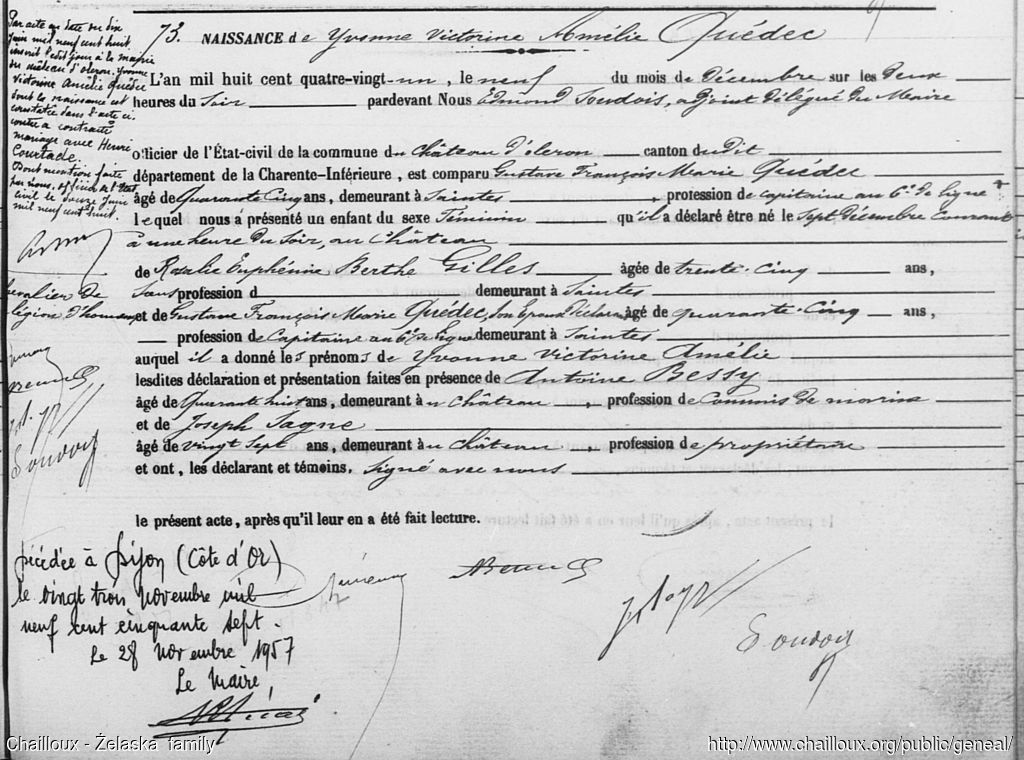 Par acte en date du dix
Juin mil neuf cent huit
inscrit ledit jour à la mairie
du château d'oleron, Yvonne
Victorine Amélie Quédec
dont la naissance est
constatée dans l'acte ci
contre a contracté
mariage avec Henri
Courtade.
Dont mention faite
par nous, officier de l'Etat
civil le douze Juin
mil neuf cent huit.
chevalier de
légion d'honneur
Soudois
73. NAISSANCE de Yvonne Victorine Amélie Quédec
L'an mil huit cent quatre-vingt-un, le neuf du mois de Décembre sur les deux
heures du Soir pardevant Nous Edmond Soudois, adjoint délégué du Maire
officier de l'État-civil de la commune du Château d'oleron canton du Dit
département de la Charente-Inférieure, est comparu Gustave François Marie Quédec
âgé de Quarante Cinq ans, demeurant à Saintes, profession de capitaine au 6e de ligne
lequel nous a présenté un enfant du sexe féminin qu'il a déclaré être né le Sept Décembre Courant
à une heure du Soir, au Château
de Rosalie Euphémie Berthe Gilles âgée de trente-cinq ans,
Sans profession d demeurant à Saintes
et de Gustave François Marie Quédec, son Epoux déclarant âgé de quarante-cinq ans,
profession de Capitaine au 6e de ligne demeurant à Saintes
auquel il a donné les prénoms de Yvonne Victorine Amélie
lesdites déclaration et présentation faites en présence de Antoine Bessy
âgé de Quarante huit ans, demeurant au Château, profession de Commis de marine
et de Joseph Sagne
âgé de vingt sept ans, demeurant au Château, profession de propriétaire
et ont, les déclarant et témoins, Signé avec nous
le présent acte, après qu'il leur en a été fait lecture.
Décédée à Dijon (Côte d'Or)
le vingt trois novembre mil
neuf cent cinquante sept.
Le 28 novembre 1957
Le Maire,
Soudois
Chailloux - Żelaska family
http://www.chailloux.org/public/geneal/